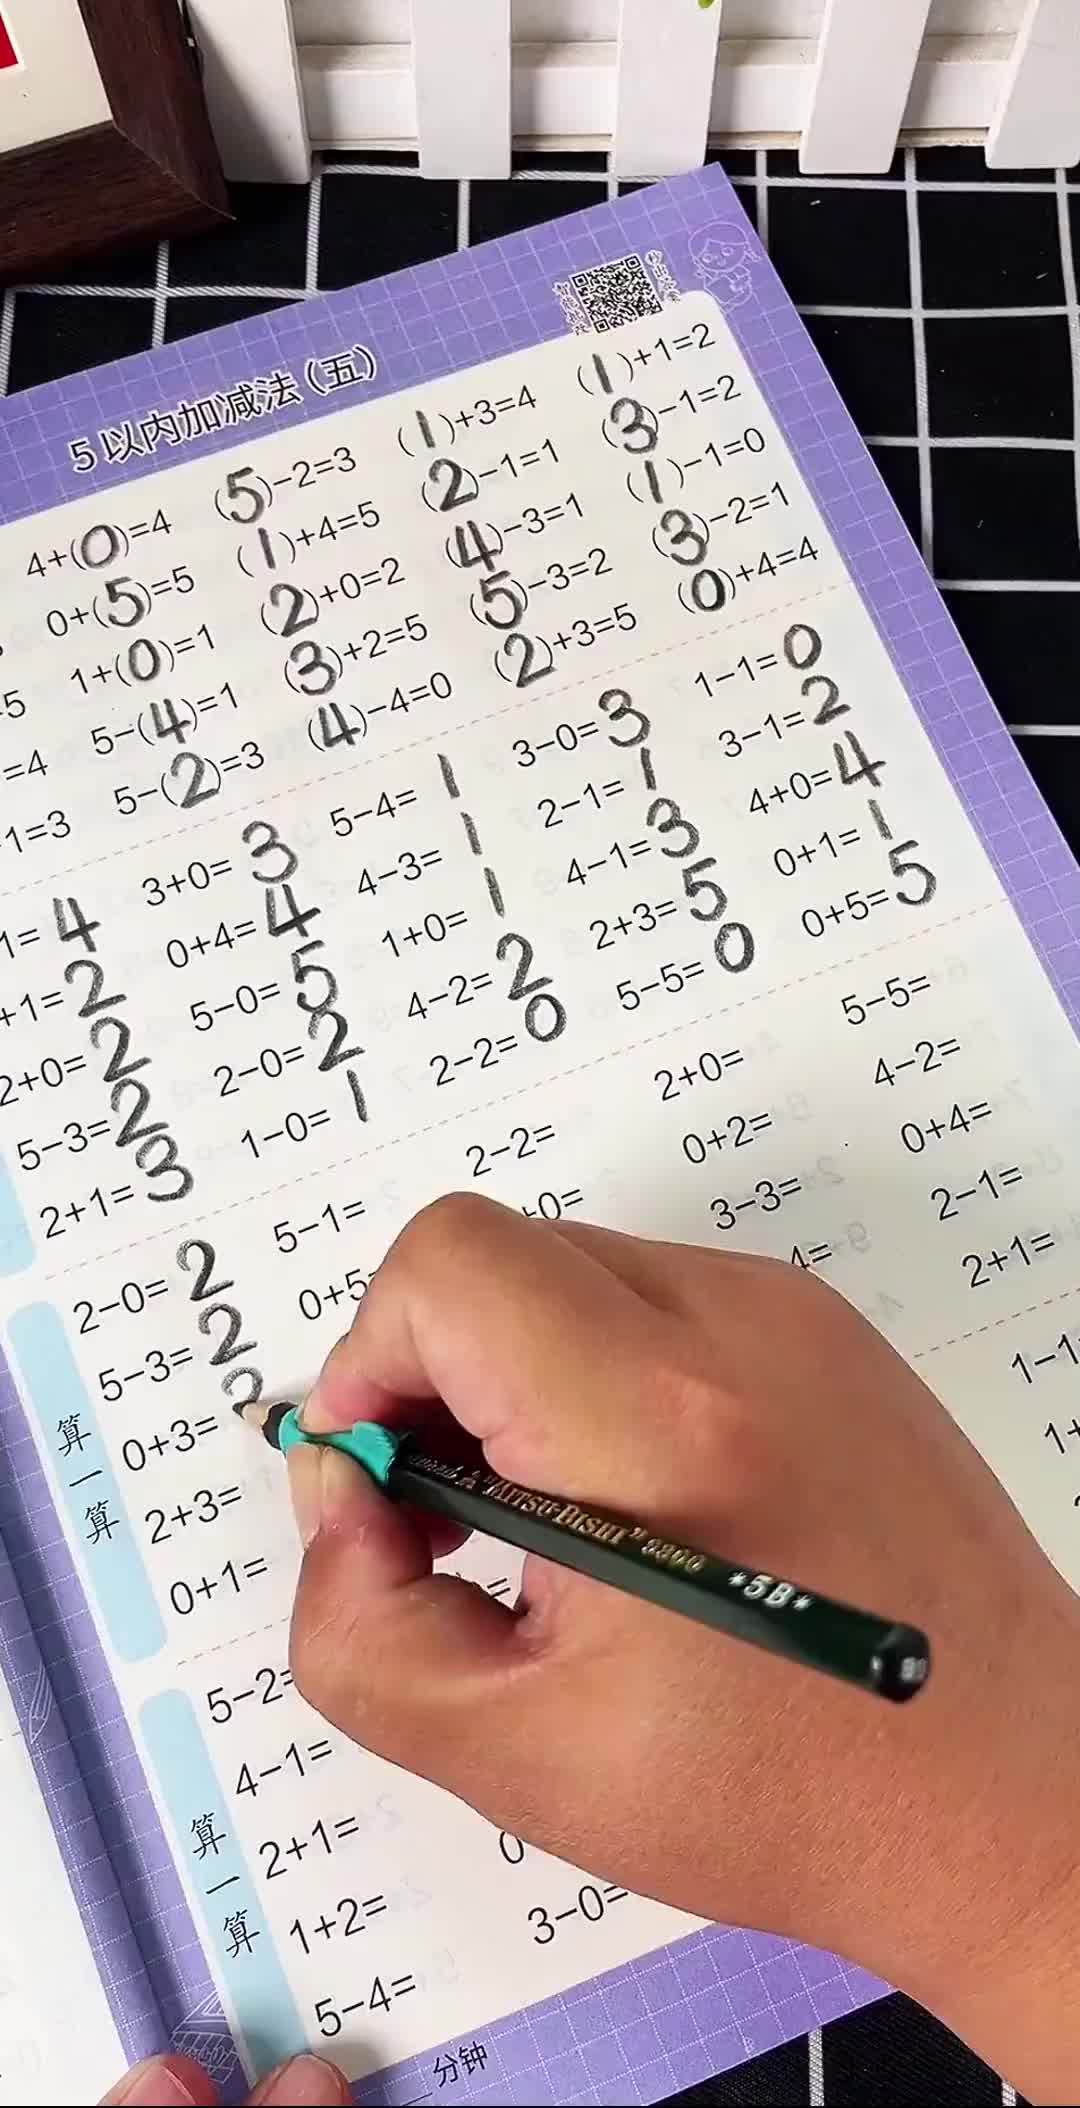 5以内加减法(五)
4+(0)=4 (5)-2=3 (1)+3=4 (1)+1=2
0+(5)=5 (1)+4=5 (2)-1=1 (3)-1=2
1+(0)=1 (2)+0=2 (4)-3=1 (1)-1=0
=4 5-(4)=1 (3)+2=5 (5)-3=2 (3)-2=1
1=3 5-(2)=3 (4)-4=0 (2)+3=5 (0)+4=4
1=4 3+0=3 5-4=1 3-0=3 1-1=0
+1=2 0+4=4 4-3=1 2-1=1 3-1=2
2+0=2 5-0=5 1+0=1 4-1=3 4+0=4
5-3=2 2-0=2 4-2=2 2+3=5 0+1=1
2+1=3 1-0=1 2-2=0 5-5=0 0+5=5
算一算
2-0=2 5-1= 2-2= 2+0= 5-5=
5-3=2 0+5= +0= 0+2= 4-2=
0+3= 3-3= 0+4=
2+3= 4= 2-1=
0+1= = 2+1=
算一算
5-2= 1-1
4-1= 1+
2+1=
1+2= 0
5-4= 3-0=
分钟
"MITSU-BISHI" 9800 *5B*